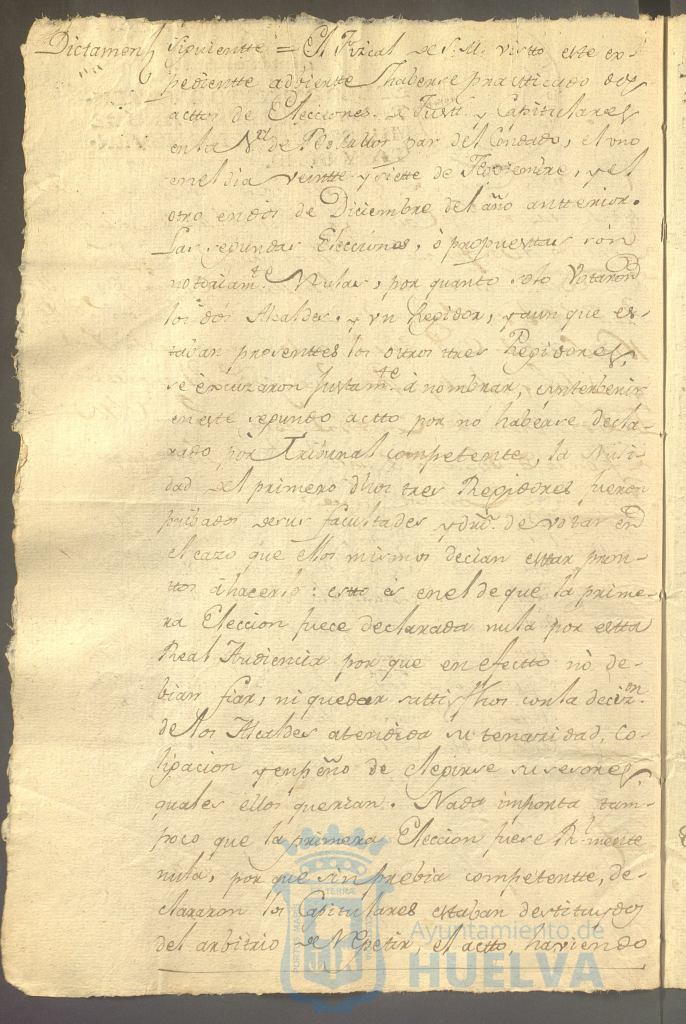 Dictamen siguiente = El Fizcal de S. M. visto este ex-
pediente advierte haberse practicado dos
actos de Elecciones de Justª. y Capitulares
en la Vª. de Bollullos par del Condado, el uno
en el dia veintte y siette de Noviembre, y el
otro en dos de Diciembre del año antterior.
Las segundas Elecciones, ò propuestas son
nottoriamte. Nulas, por quanto solo Votaron
los dos Alcaldes. y un Regidor, y aunque es-
taban presenttes los otros ttres Regidores,
se excuzaron justamte. á nombrar, é interbenir
en este segundo actto por no haberse decla-
rado por Tribunal competente, la Nuli-
dad del primero dhos tres Regidores fueron
pribados de sus facultades y dro. de votar en
el cazo que ellos mismos decian esttar pron-
ttos á hacerlo: estto és en el de que la prime-
ra Eleccion fuece declarada nula por estta
Real Audiencia por que en efectto nó de-
bian fiar, ni quedar sattisfhos con la decizon.
de los Alcaldes atendida su tenacidad, co-
ligacion y enpeño de elegirse susesores
quales éllos querian. Nada importa tam-
poco que la primera Eleccion fuese Rl.mente
nula, por que sin prebia competentte, de-
clararon los Capitulares estaban destituydos
del arbitrio de Repetir el actto, haviendo
Ayuntamiento de
HUELVA